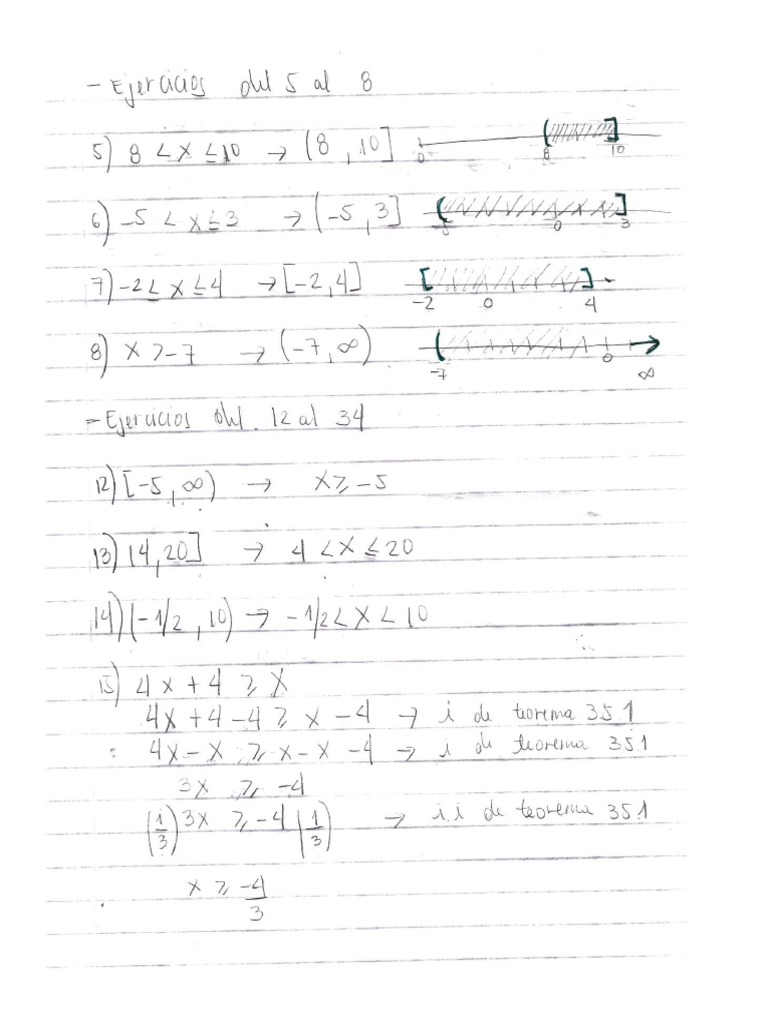 - Ejercicios del 5 al 8
5) 8 < x ≤ 10 → (8, 10] 0 8 10
6) -5 < x ≤ 3 → (-5, 3] -5 0 3
7) -2 ≤ x ≤ 4 → [-2, 4] -2 0 4
8) x > -7 → (-7, ∞) -7 0 ∞
- Ejercicios del 12 al 34
12) [-5, ∞) → x ≥ -5
13) (4, 20] → 4 < x ≤ 20
14) (-1/2, 10) → -1/2 < x < 10
15) 4x + 4 ≥ x
4x + 4 - 4 ≥ x - 4 → i de teorema 3.5.1
4x - x ≥ x - x - 4 → i de teorema 3.5.1
3x ≥ -4
(1/3) 3x ≥ -4 (1/3) → i.i de teorema 3.5.1
x ≥ -4/3